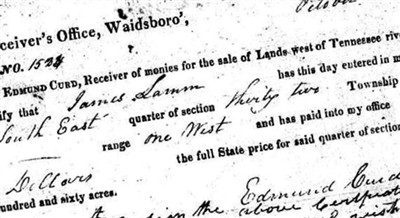 October
ceiver's Office, Waidsboro',
NO. 152
EDMUND CURD, Receiver of monies for the sale of Lands west of Tennessee rive
ify that James Lamm has this day entered in m
South East quarter of section thirty two Township
range one West and has paid into my office
the full State price for said quarter of section
Dollars
undred and sixty acres.
Edmund Curd
the above Certificat